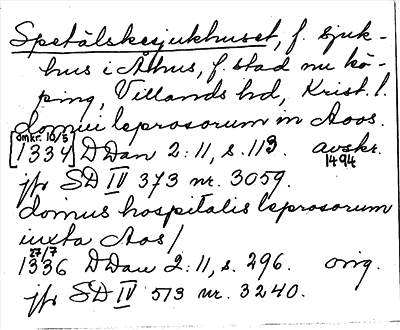 Spetälskesjukhuset, f. sjuk-
hus i Åhus, f. stad nu kö-
ping, Villands hd, Krist. l.
domui leprosorum in Aoos.
omkr. 10/5
[1334] DDan 2:11, s. 113 avskr.
1494
jfr SD IV 373 nr. 3059.
domus hospitalis leprosorum
iuxta Aos/
27/7
1336 DDan 2:11, s. 296. orig.
jfr SD IV 513 nr. 3240.